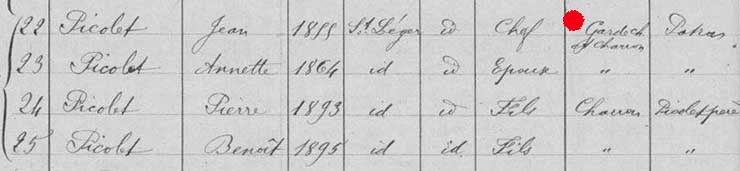 22 Picolet Jean 1855 St Léger id Chef Garde ch Patron
et Charron
23 Picolet Annette 1864 id id Epouse " "
24 Picolet Pierre 1893 id id Fils Charron Picolet père
25 Picolet Benoît 1895 id id Fils " "